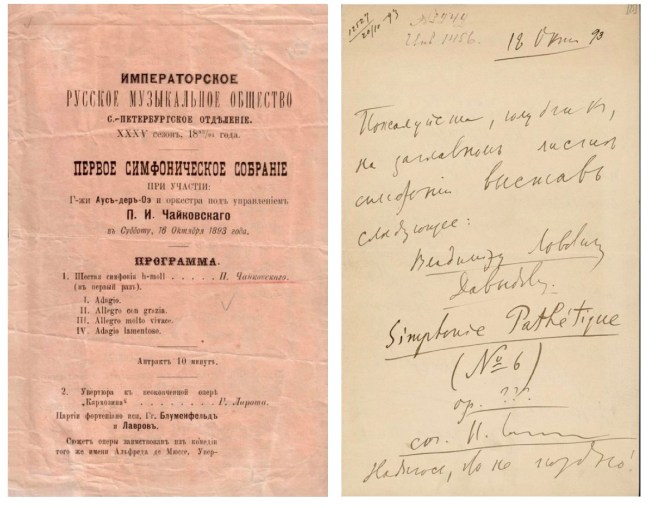 ИМПЕРАТОРСКОЕ
РУССКОЕ МУЗЫКАЛЬНОЕ ОБЩЕСТВО
С.-ПЕТЕРБУРГСКОЕ ОТДѢЛЕНІЕ.
XXXV сезонъ, 18⁹³/₉₄ года.
ПЕРВОЕ СИМФОНИЧЕСКОЕ СОБРАНІЕ
ПРИ УЧАСТІИ:
Г-жи Аусъ-деръ-Оэ и оркестра подъ управленіемъ
П. И. Чайковскаго
въ Субботу, 16 Октября 1893 года.
ПРОГРАММА.
1. Шестая симфонія h-moll . . . . . П. Чайковскаго.
(въ первый разъ).
I. Adagio.
II. Allegro con grazia.
III. Allegro molto vivace.
IV. Adagio lamentoso.
Антрактъ 10 минутъ.
2. Увертюра къ неоконченной оперѣ
„Кармозина“ . . . . . . . . Г. Лароша.
Партіи фортепіано исп. Гг. Блуменфельдъ
и Лавровъ.
Сюжетъ оперы заимствованъ изъ комедіи
того же имени Альфреда де Мюссе. Увер-
20/10 93
18 Окт 93
Пожалуйста, голубчикъ,
на заглавномъ листѣ
симфоніи выставь
слѣдующее:
Владиміру Львовичу
Давыдову.
Simphonie Pathétique
(№ 6)
op. ???
соч. П.
Надѣюсь, что не поздно!